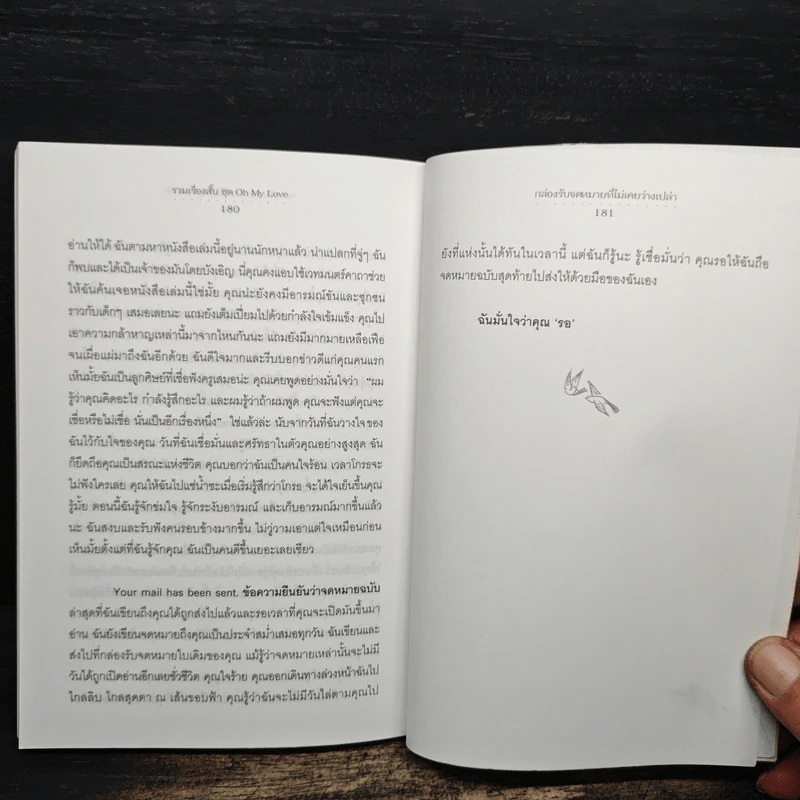 รวมเรื่องสั้น ชุด Oh My Love
180
อ่านให้ได้ ฉันตามหาหนังสือเล่มนี้อยู่นานนักหนาแล้ว น่าแปลกที่จู่ๆ ฉัน
ก็พบและได้เป็นเจ้าของมันโดยบังเอิญ นี่คุณคงแอบใช้เวทมนตร์คาถาช่วย
ให้ฉันค้นเจอหนังสือเล่มนี้ใช่มั้ย คุณน่ะยังคงมีอารมณ์ขันและซุกซน
ราวกับเด็กๆ เสมอเลยนะ แถมยังเต็มเปี่ยมไปด้วยกำลังใจเข้มแข็ง คุณไป
เอาความกล้าหาญเหล่านี้มาจากไหนกันนะ แถมยังมีมากมายเหลือเฟือ
จนเผื่อแผ่มาถึงฉันอีกด้วย ฉันดีใจมากและรีบบอกข่าวดีแก่คุณคนแรก
เห็นมั้ยฉันเป็นลูกศิษย์ที่เชื่อฟังครูเสมอน่ะ คุณเคยพูดอย่างมั่นใจว่า "ผม
รู้ว่าคุณคิดอะไร กำลังรู้สึกอะไร และผมรู้ว่าถ้าผมพูด คุณจะฟังแต่คุณจะ
เชื่อหรือไม่เชื่อ นั่นเป็นอีกเรื่องหนึ่ง" ใช่แล้วล่ะ นับจากวันที่ฉันวางใจของ
ฉันไว้กับใจของคุณ วันที่ฉันเชื่อมั่นและศรัทธาในตัวคุณอย่างสูงสุด ฉัน
ก็ยึดถือคุณเป็นสรณะแห่งชีวิต คุณบอกว่าฉันเป็นคนใจร้อน เวลาโกรธจะ
ไม่ฟังใครเลย คุณให้ฉันไปแช่น้ำซะเมื่อเริ่มรู้สึกว่าโกรธ จะได้ใจเย็นขึ้นคุณ
รู้มั้ย ตอนนี้ฉันรู้จักข่มใจ รู้จักระงับอารมณ์ และเก็บอารมณ์มากขึ้นแล้ว
นะ ฉันสงบและรับฟังคนรอบข้างมากขึ้น ไม่วู่วามเอาแต่ใจเหมือนก่อน
เห็นมั้ยตั้งแต่ที่ฉันรู้จักคุณ ฉันเป็นคนดีขึ้นเยอะเลยเชียว
Your mail has been sent. ข้อความยืนยันว่าจดหมายฉบับ
ล่าสุดที่ฉันเขียนถึงคุณได้ถูกส่งไปแล้วและรอเวลาที่คุณจะเปิดมันขึ้นมา
อ่าน ฉันยังเขียนจดหมายถึงคุณเป็นประจำสม่ำเสมอทุกวัน ฉันเขียนและ
ส่งไปที่กล่องรับจดหมายใบเดิมของคุณ แม้รู้ว่าจดหมายเหล่านั้นจะไม่มี
วันได้ถูกเปิดอ่านอีกเลยชั่วชีวิต คุณใจร้าย คุณออกเดินทางล่วงหน้าฉันไป
ไกลลิบ ไกลสุดตา ณ เส้นขอบฟ้า คุณรู้ว่าฉันจะไม่มีวันไล่ตามคุณไป
กล่องรับจดหมายที่ไม่เคยว่างเปล่า
181
ยังที่แห่งนั้นได้ทันในเวลานี้ แต่ฉันก็รู้นะ รู้เชื่อมั่นว่า คุณรอให้ฉันถือ
จดหมายฉบับสุดท้ายไปส่งให้ด้วยมือของฉันเอง
ฉันมั่นใจว่าคุณ 'รอ'